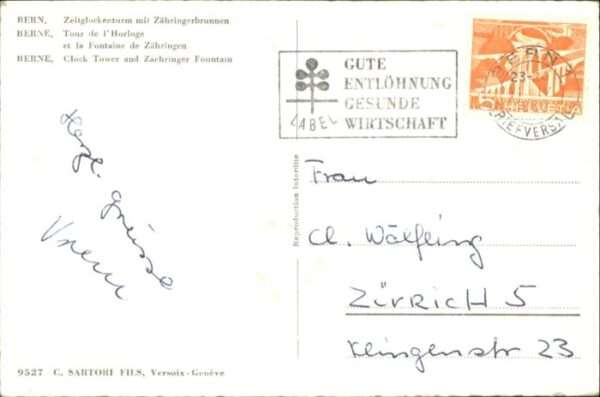 BERN, Zeitglockenturm mit Zähringerbrunnen
BERNE, Tour de l'Horloge
et la Fontaine de Zähringen
BERNE, Clock Tower and Zaehringer Fountain
GUTE
ENTLÖHNUNG
GESUNDE
WIRTSCHAFT
LABEL
BERN
23
BRIEFVERS
HELVETIA
Herzl. Grüsse
Reproduction interdite
Frau
Cl. Wölfling
ZÜRICH 5
Klingenstr 23
9527 C. SARTORI FILS, Versoix-Genève